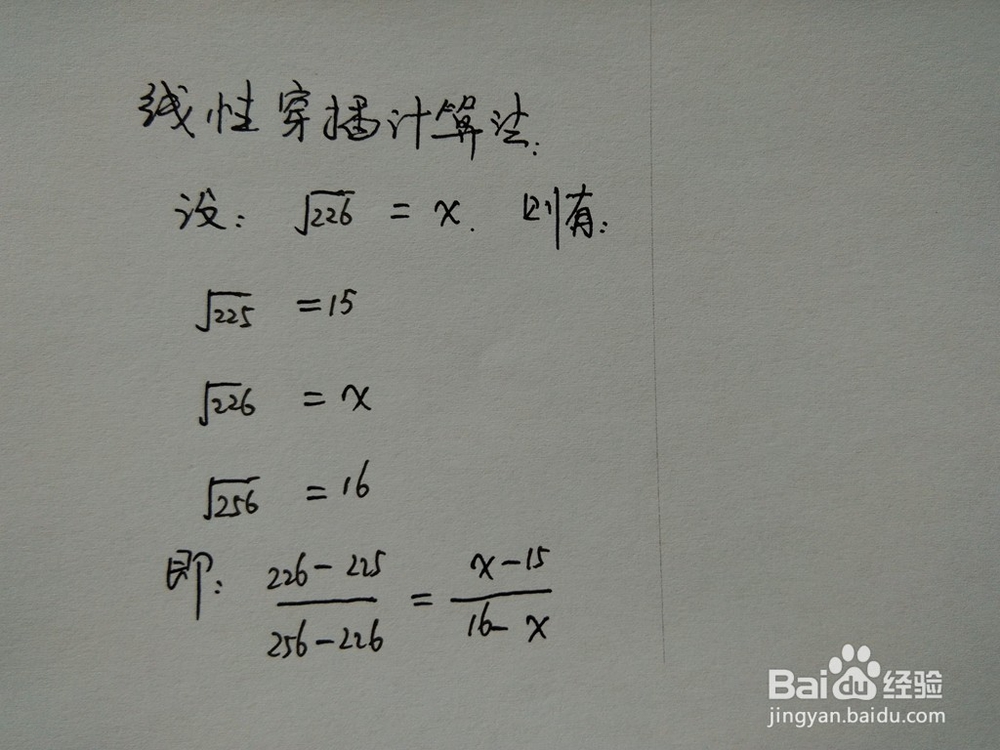 线性穿插计算法:
设: √226 = x. 则有:
√225 = 15
√226 = x
√256 = 16
即: (226-225)/(256-226) = (x-15)/(16-x)
Baidu 经验
jingyan.baidu.com